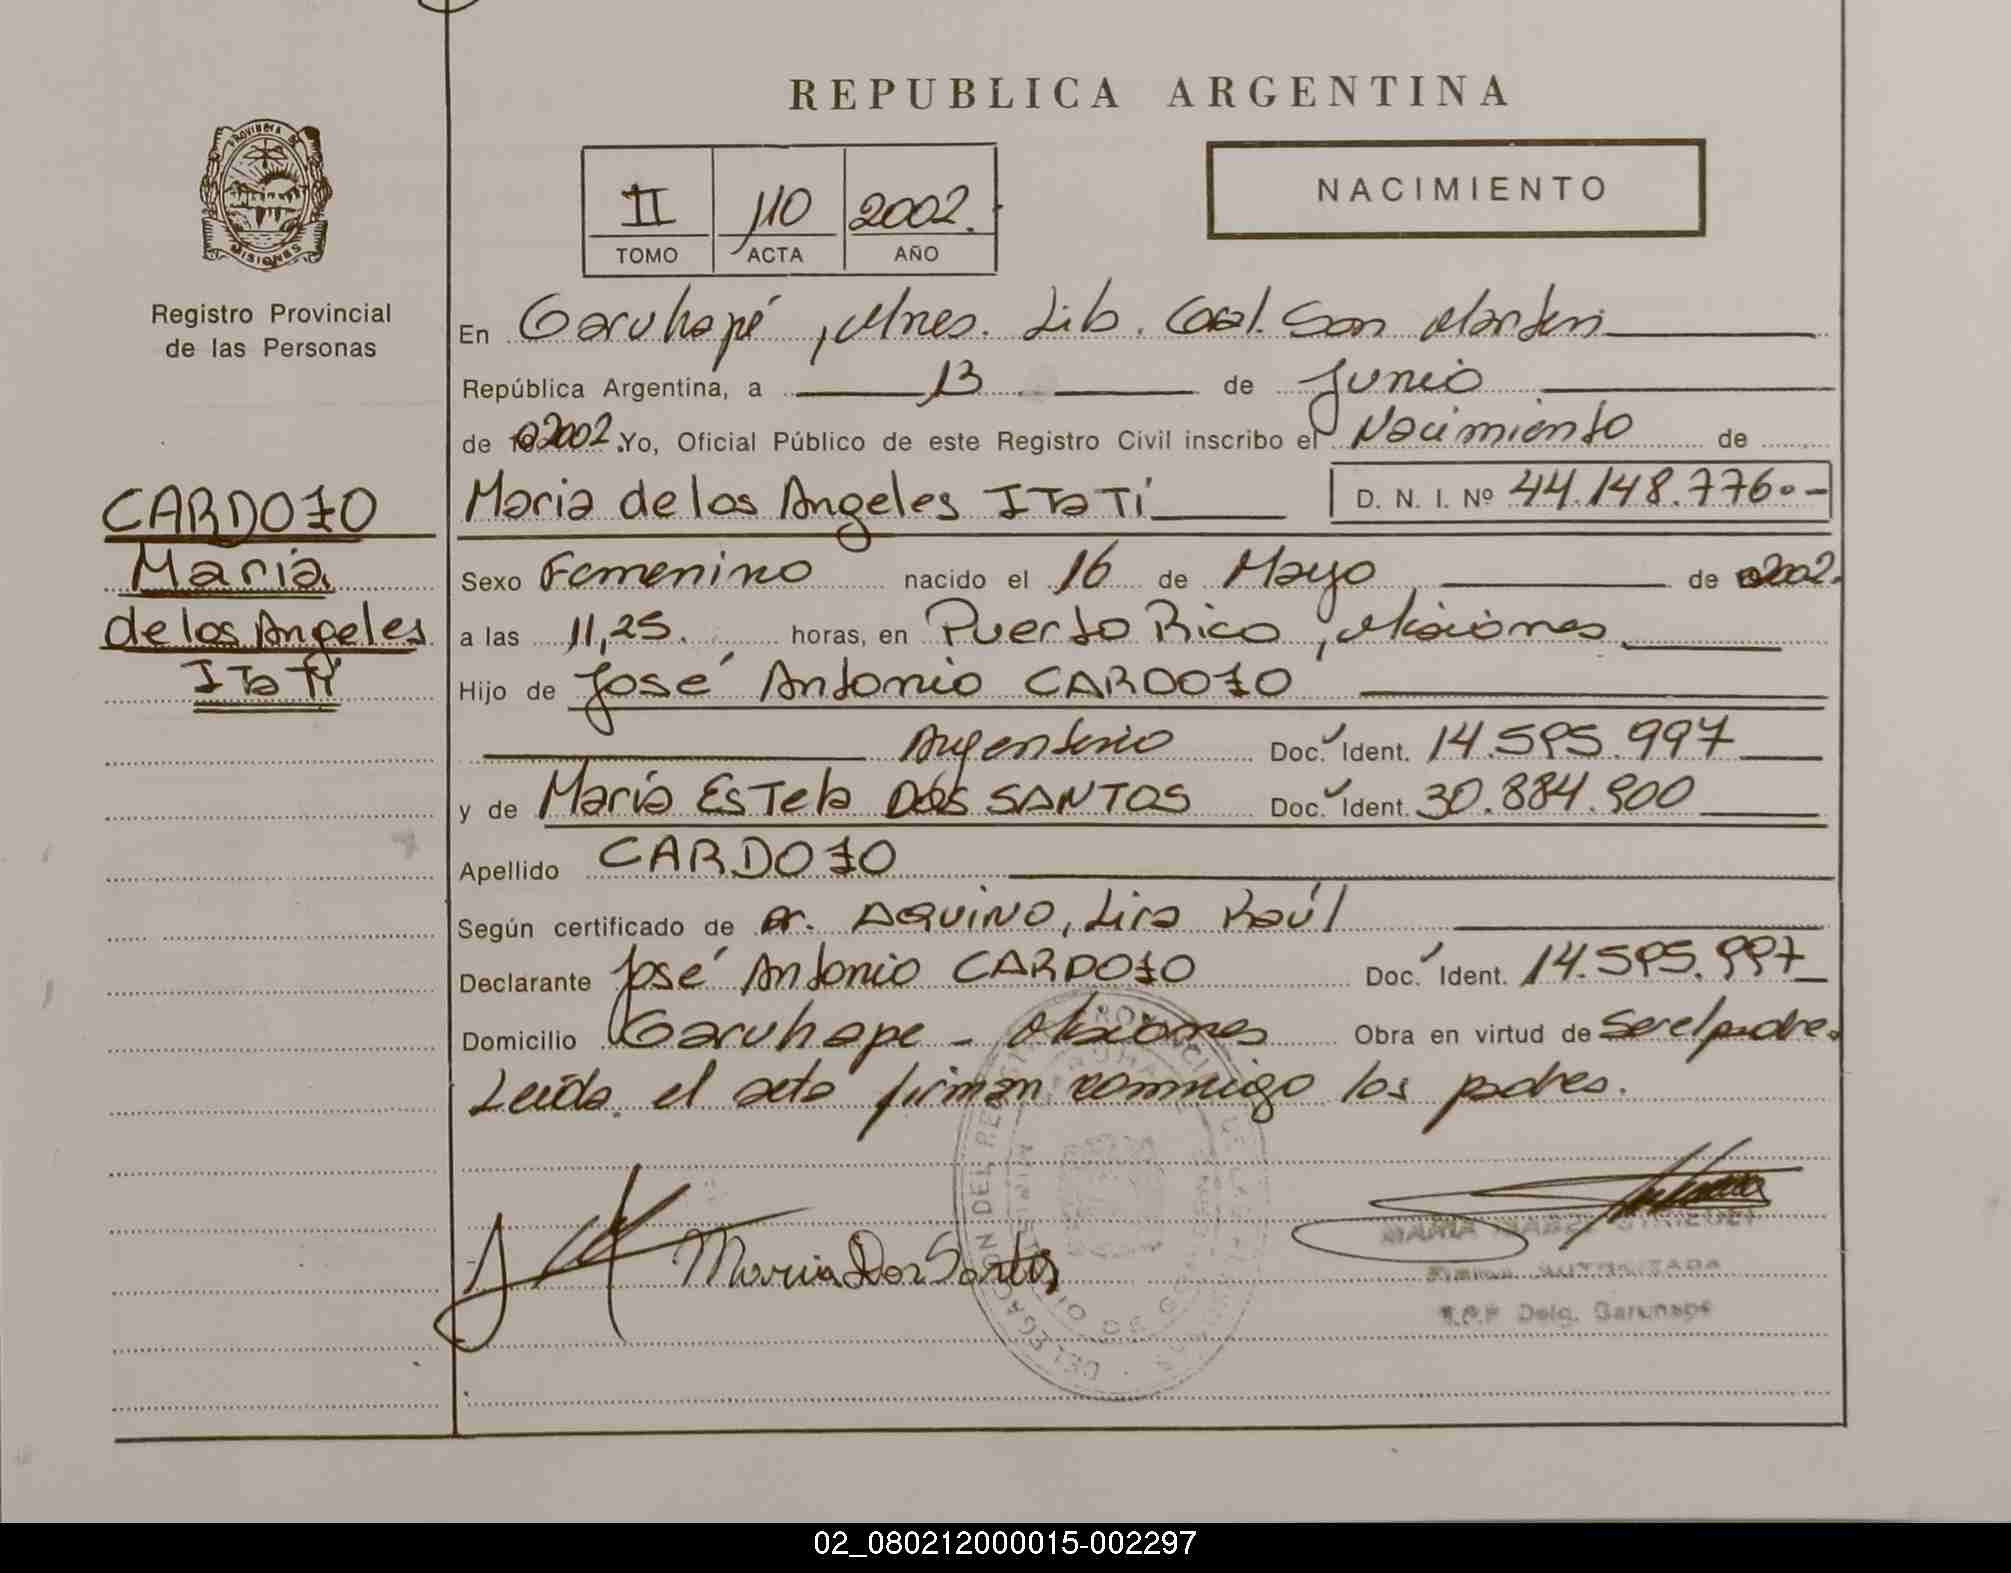 REPUBLICA ARGENTINA
PROVINCIA DE
MISIONES
Registro Provincial
de las Personas
II 110 2002.
TOMO ACTA AÑO
NACIMIENTO
En Garuhapé, Mnes. Lib. Gral. San Martin
República Argentina, a 13 de Junio
de 2002. Yo, Oficial Público de este Registro Civil inscribo el Nacimiento de
Maria de los Angeles ITaTí D. N. I. Nº 44.148.776.-
CARDOZO
Maria
de los Angeles
ITaTí
Sexo Femenino nacido el 16 de Mayo de 2002.
a las 11,25. horas, en Puerto Rico, Misiones
Hijo de José Antonio CARDOZO
Argentino Doc. Ident. 14.595.997
y de María Estela DOS SANTOS Doc. Ident. 30.884.900
Apellido CARDOZO
Según certificado de Dr. AQUINO, Lira Raúl
Declarante José Antonio CARDOZO Doc. Ident. 14.595.997
Domicilio Garuhape - Misiones Obra en virtud de Ser el padre.
Leída el acta firman conmigo los padres.
Maria Dos Santos
MARIA
FIRMA AUTORIZADA
R.C.P. Delg. Garuhapé
DELEGACION DEL REGISTRO PROVINCIAL DE LAS PERSONAS
02_080212000015-002297